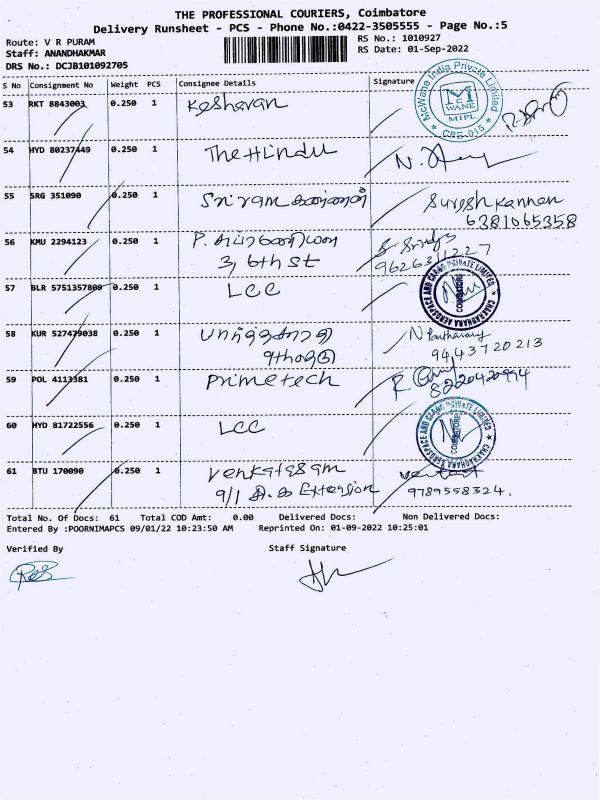 THE PROFESSIONAL COURIERS, Coimbatore
Delivery Runsheet - PCS - Phone No.:0422-3505555 - Page No.:5
Route: V R PURAM
RS No.: 1010927
Staff: ANANDHAKMAR
RS Date: 01-Sep-2022
DRS No.: DCJB101092705
S No Consignment No Weight PCS Consignee Details Signature
McWane India Private Limited
McWANE
MIPL
CBE-015
53 RKT 8843003 0.250 1 Kesharan
54 HYD 80237449 0.250 1 The Hindu
55 SRG 351090 0.250 1 Sriram கண்ணன் Suresh Kannan
6381065358
56 KMU 2294123 0.250 1 P. சுப்ரமணியன்
3, 6th st 9626311227
57 BLR 5751357809 0.250 1 LCC
CHAKRADHARA AEROSPACE AND CARGO PRIVATE LIMITED
COIMBATORE
58 KUR 527479038 0.250 1 பார்த்தசாரதி
9443720213
59 POL 4113381 0.250 1 Primetech
8220420994
60 HYD 81722556 0.250 1 LCC
CHAKRADHARA AEROSPACE AND CARGO PRIVATE LIMITED
COIMBATORE
61 BTU 170090 0.250 1 Venkatesam
9/1 Extension 9789558324.
Total No. Of Docs: 61 Total COD Amt: 0.00 Delivered Docs: Non Delivered Docs:
Entered By :POORNIMAPCS 09/01/22 10:23:50 AM Reprinted On: 01-09-2022 10:25:01
Verified By Staff Signature